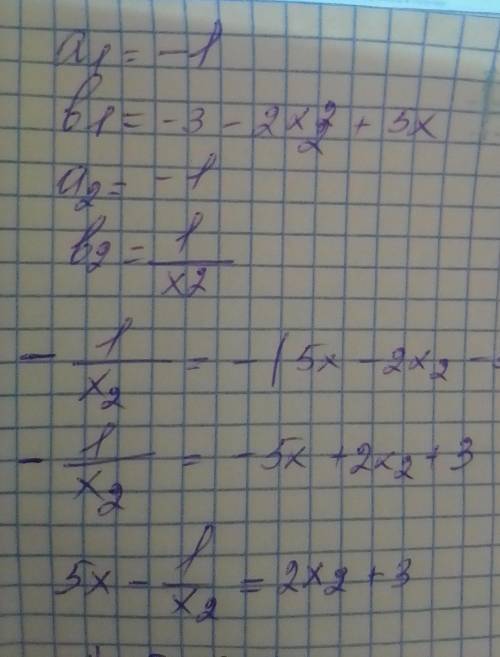 a1 = -1
b1 = -3 - 2x2 + 5x
a2 = -1
b2 = 1/x2
- 1/x2 = -(5x - 2x2 -
- 1/x2 = -5x + 2x2 + 3
5x - 1/x2 = 2x2 + 3